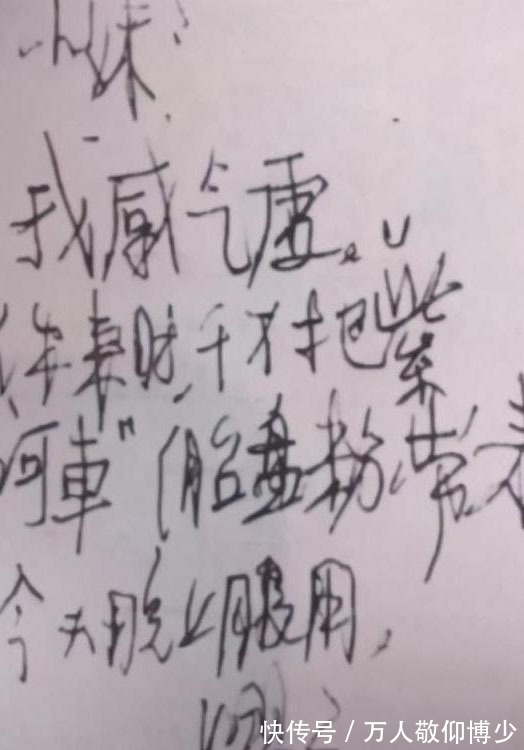 小妹:
我感气虚。
你来时,千万把“紫
河車”(胎盘粉)带来
今天晚上服用,
快传号 / 万人敬仰博少